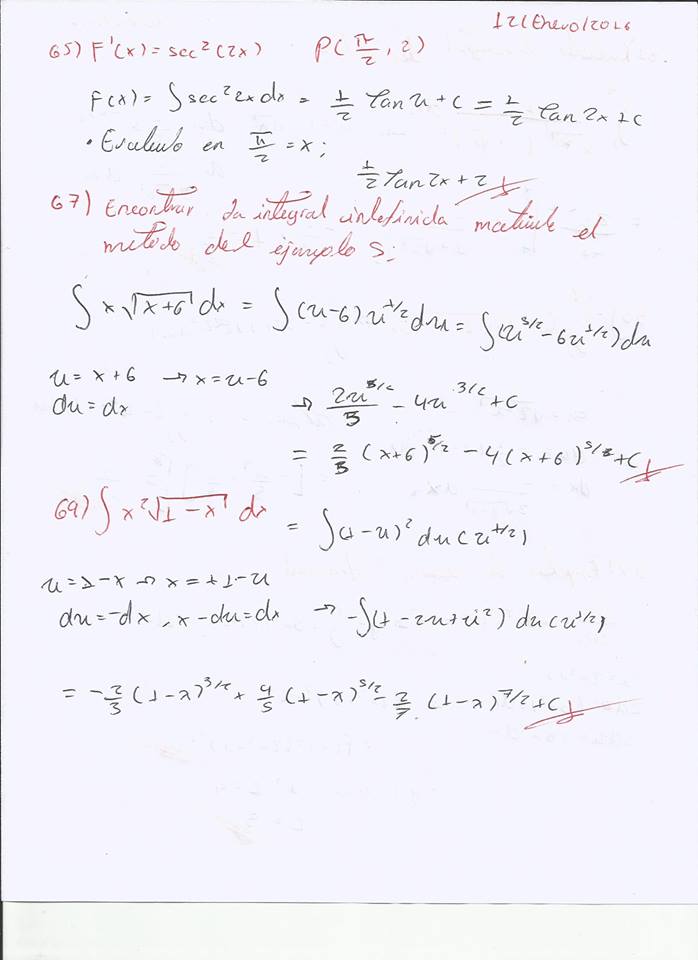 12/Enero/2016
65) F'(x) = sec²(2x)   P(π/2, 2)
F(x) = ∫ sec² 2x dx = 1/2 Tan u + c = 1/2 Tan 2x + c
• Evaluando en π/2 = x;
1/2 Tan 2x + 2
67) Encontrar la integral indefinida mediante el
método del ejemplo 5;
∫ x √(x+6) dx = ∫ (u-6) u^1/2 du = ∫ (u^3/2 - 6u^1/2) du
u = x+6 → x = u-6
du = dx   → 2u^5/2 / 5 - 4u^3/2 + c
= 2/5 (x+6)^5/2 - 4(x+6)^3/2 + c
69) ∫ x² √(1-x) dx = ∫ (1-u)² du (u^1/2)
u = 1-x → x = +1-u
du = -dx, x - du = dx   → -∫ (1 - 2u + u²) du (u^1/2)
= -2/3 (1-x)^3/2 + 4/5 (1-x)^5/2 - 2/7 (1-x)^7/2 + c